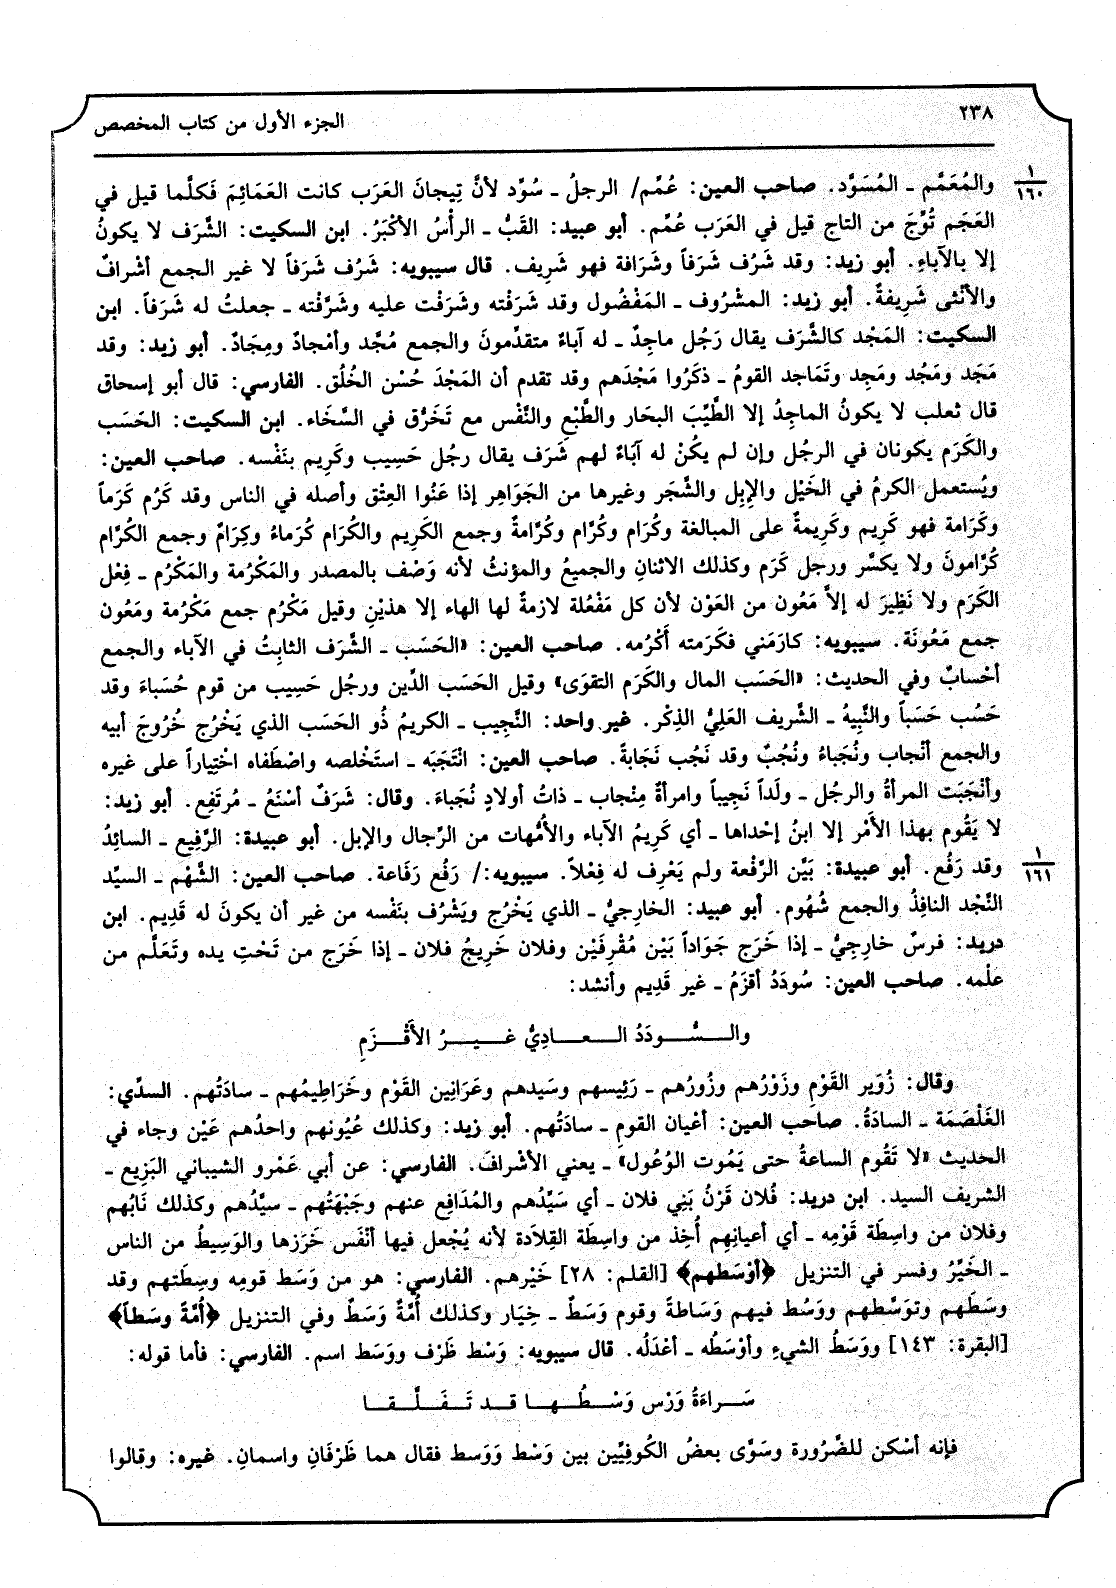 ٢٣٨
الجزء الأول من كتاب المخصص
١
١٦٠
والمُعَمَّم ـ المُسَوَّد. صاحب العين: عُمِّم/ الرجلُ ـ سُوِّد لأنَّ تِيجانَ العَرَب كانت العَمَائِمَ فَكلَّما قيل في
العَجَم تُوِّجَ من التاج قيل في العَرَب عُمِّم. أبو عبيد: القَبُّ ـ الرأْسُ الأكْبَرُ. ابن السكيت: الشَّرَف لا يكونُ
إلا بالآباءِ. أبو زيد: وقد شَرُف شَرَفاً وشَرَافة فهو شَرِيف. قال سيبويه: شَرُف شَرَفاً لا غير الجمع أشْرافٌ
والأنْثى شَرِيفةٌ. أبو زيد: المشْرُوف ـ المَفْضُول وقد شَرَفْته وشَرَفْت عليه وشَرَّفْته ـ جعلتُ له شَرَفاً. ابن
السكيت: المَجْد كالشَّرَف يقال رَجُل ماجِدٌ ـ له آباءٌ متقدِّمونَ والجمع مُجَّد وأمْجادٌ ومِجَادٌ. أبو زيد: وقد
مَجَد ومَجُد ومَجِد وتَمَاجد القومُ ـ ذكَرُوا مَجْدَهم وقد تقدم أن المَجْدَ حُسْن الخُلُق. الفارسي: قال أبو إسحاق
قال ثعلب لا يكونُ الماجِدُ إلا الطَّيِّبَ البحَار والطَّبْعِ والنَّفْس مع تَخَرُّق في السَّخَاء. ابن السكيت: الحَسَب
والكَرَم يكونان في الرجُل وإن لم يكُنْ له آبَاءٌ لهم شَرَف يقال رجُل حَسِيب وكَرِيم بنَفْسه. صاحب العين:
ويُستعمل الكرمُ في الخَيْل والإبِل والشَّجَر وغيرها من الجَوَاهِر إذا عَنُوا العِتْق وأصله في الناس وقد كَرُم كَرَماً
وكَرَامة فهو كَرِيم وكَرِيمةٌ على المبالغة وكُرَام وكُرَّام وكُرَّامةٌ وجمع الكَرِيم والكُرَام كُرَماءُ وكِرَامٌ وجمع الكُرَّام
كُرَّامونَ ولا يكسَّر ورجل كَرَم وكذلك الاثنانِ والجميعُ والمؤنثُ لأنه وَصْف بالمصدر والمَكْرُمة والمَكْرُم ـ فِعْل
الكَرَم ولا نَظِيرَ له إلاَّ مَعُون من العَوْن لأن كل مَفْعُلة لازمةٌ لها الهاء إلا هذيْنِ وقيل مَكْرُم جمع مَكْرُمة ومَعُون
جمع مَعُونَة. سيبويه: كارَمَني فكَرَمته أَكْرُمه. صاحب العين: «الحَسَب ـ الشَّرَف الثابِتُ في الآباء والجمع
أحْسابٌ وفي الحديث: «الحَسَب المال والكَرَم التقوَى» وقيل الحَسَب الدِّين ورجُل حَسِيب من قوم حُسَباءَ وقد
حَسُب حَسَباً والنَّبِيهُ ـ الشَّريف العَلِيُّ الذِّكْر. غير واحد: النَّجِيب ـ الكريمُ ذُو الحَسَب الذي يَخْرُج خُرُوجَ أبيه
والجمع أنْجاب ونُجَباءُ ونُجُبٌ وقد نَجُب نَجَابةً. صاحب العين: انْتَجَبَه ـ استَخْلصه واصْطَفاه اخْتِياراً على غيره
وأنْجَبَت المرأةُ والرجُل ـ ولَداً نَجِيباً وامرأةٌ مِنْجاب ـ ذاتُ أولادٍ نُجَباءَ. وقال: شَرَفٌ أسْنَعُ ـ مُرتَفِع. أبو زيد:
لا يَقُوم بهذا الأَمْر إلا ابنُ إحْداها ـ أي كَرِيمُ الآباء والأُمَّهات من الرِّجال والإبل. أبو عبيدة: الرَّفِيع ـ السائِدُ
١
١٦١
وقد رَفُع. أبو عبيدة: بَيِّن الرِّفْعة ولم يَعْرِف له فِعْلاً. سيبويه:/ رَفُع رَفَاعة. صاحب العين: الشَّهْم ـ السيِّد
النَّجْد النافِذُ والجمع شُهُوم. أبو عبيد: الخارجيُّ ـ الذي يَخْرُج ويَشْرُف بنَفْسه من غير أن يكونَ له قَدِيم. ابن
دريد: فرسٌ خارجِيٌّ ـ إذا خَرَج جَوَاداً بَيْن مُقْرِفَيْن وفلان خَرِيجُ فلان ـ إذا خَرَج من تَحْتِ يده وتَعَلَّم من
علْمه. صاحب العين: سُودَدُ أقزَمُ ـ غير قَدِيم وأنشد:
والسُّودَدُ العادِيُّ غيرُ الأَقْزَمِ
وقال: زُوَير القَوْم وزَوْرُهم وزُورُهم ـ رَئِيسهم وسَيدهم وعَرَانِين القَوْم وخَرَاطِيمُهم ـ سادَتُهم. السدِّي:
الغَلْصَمَة ـ السادَةُ. صاحب العين: أعْيان القومِ ـ سادَتُهم. أبو زيد: وكذلك عُيُونهم واحدُهم عَيْن وجاء في
الحديث «لا تَقُوم الساعةُ حتى يَمُوت الوُعُول» ـ يعني الأشْرافَ. الفارسي: عن أبي عَمْرو الشيباني البَزِيع ـ
الشريف السيد. ابن دريد: فُلان قَرْنُ بَنِي فلان ـ أي سَيِّدُهم والمُدَافِع عنهم وجَبْهَتُهم ـ سيِّدُهم وكذلك نَابُهم
وفلان من واسِطَة قَوْمِه ـ أي أعيانِهِم أُخِذ من واسِطَة القِلادَة لأنه يُجْعل فيها أنْفَس خَرَزها والوَسِيطُ من الناس
ـ الخَيِّرُ وفسر في التنزيل ﴿أوْسَطهم﴾ [القلم: ٢٨] خَيْرهم. الفارسي: هو من وَسَط قومِه وسِطَتهم وقد
وسَطَهم وتوَسَّطهم ووَسُط فيهم وَسَاطةً وقوم وَسَطٌ ـ خِيَار وكذلك أُمَّةٌ وَسَطٌ وفي التنزيل ﴿أُمَّةً وسَطاً﴾
[البقرة: ١٤٣] ووَسَطُ الشيءِ وأوْسَطُه ـ أعْدَلُه. قال سيبويه: وَسْط ظَرْف ووَسَط اسم. الفارسي: فأما قوله:
سَراءَةُ وَرْس وَسْطُها قد تَفَلَّقا
فإنه أسْكن للضَّرُورة وسَوَّى بعضُ الكُوفِيِّين بين وَسْط وَوَسط فقال هما ظَرْفَانِ واسمان. غيره: وقالوا